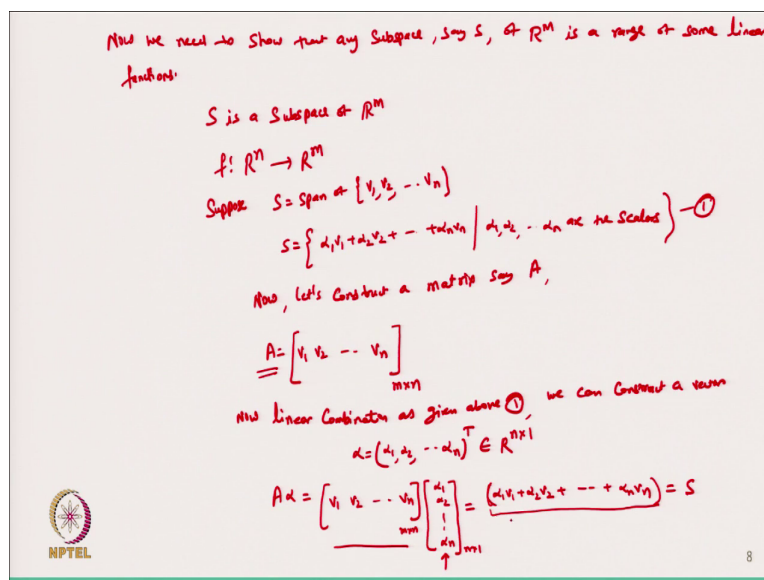 Now we need to show that any Subspace, say S, of R^m is a range of some linear
functions.
S is a Subspace of R^m
f: R^n → R^m
Suppose S = Span of {v₁, v₂, -- vₙ}
S = { α₁v₁ + α₂v₂ + -- + αₙvₙ | α₁, α₂, -- αₙ are the scalars } - ①
Now, let's Construct a matrix say A,
A = [v₁ v₂ --- vₙ]ₘₓₙ
Now linear Combination as given above ①, we can Construct a vector
α = (α₁, α₂, -- αₙ)^T ∈ R^{n×1}
Aα = [v₁ v₂ --- vₙ]ₘₓₙ [α₁ α₂ ⋮ αₙ]ₙₓ₁ = (α₁v₁ + α₂v₂ + --- + αₙvₙ) = S
NPTEL
8